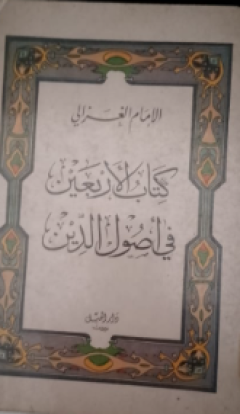 الإمام الغزالي
كتاب الأربعين
في أصول الدين
دار الجيل